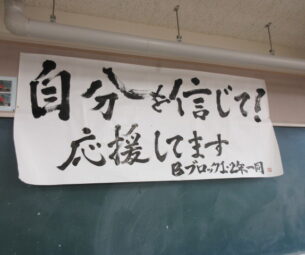 自分を信じて!
応援してます
Bブロック1・2年一同